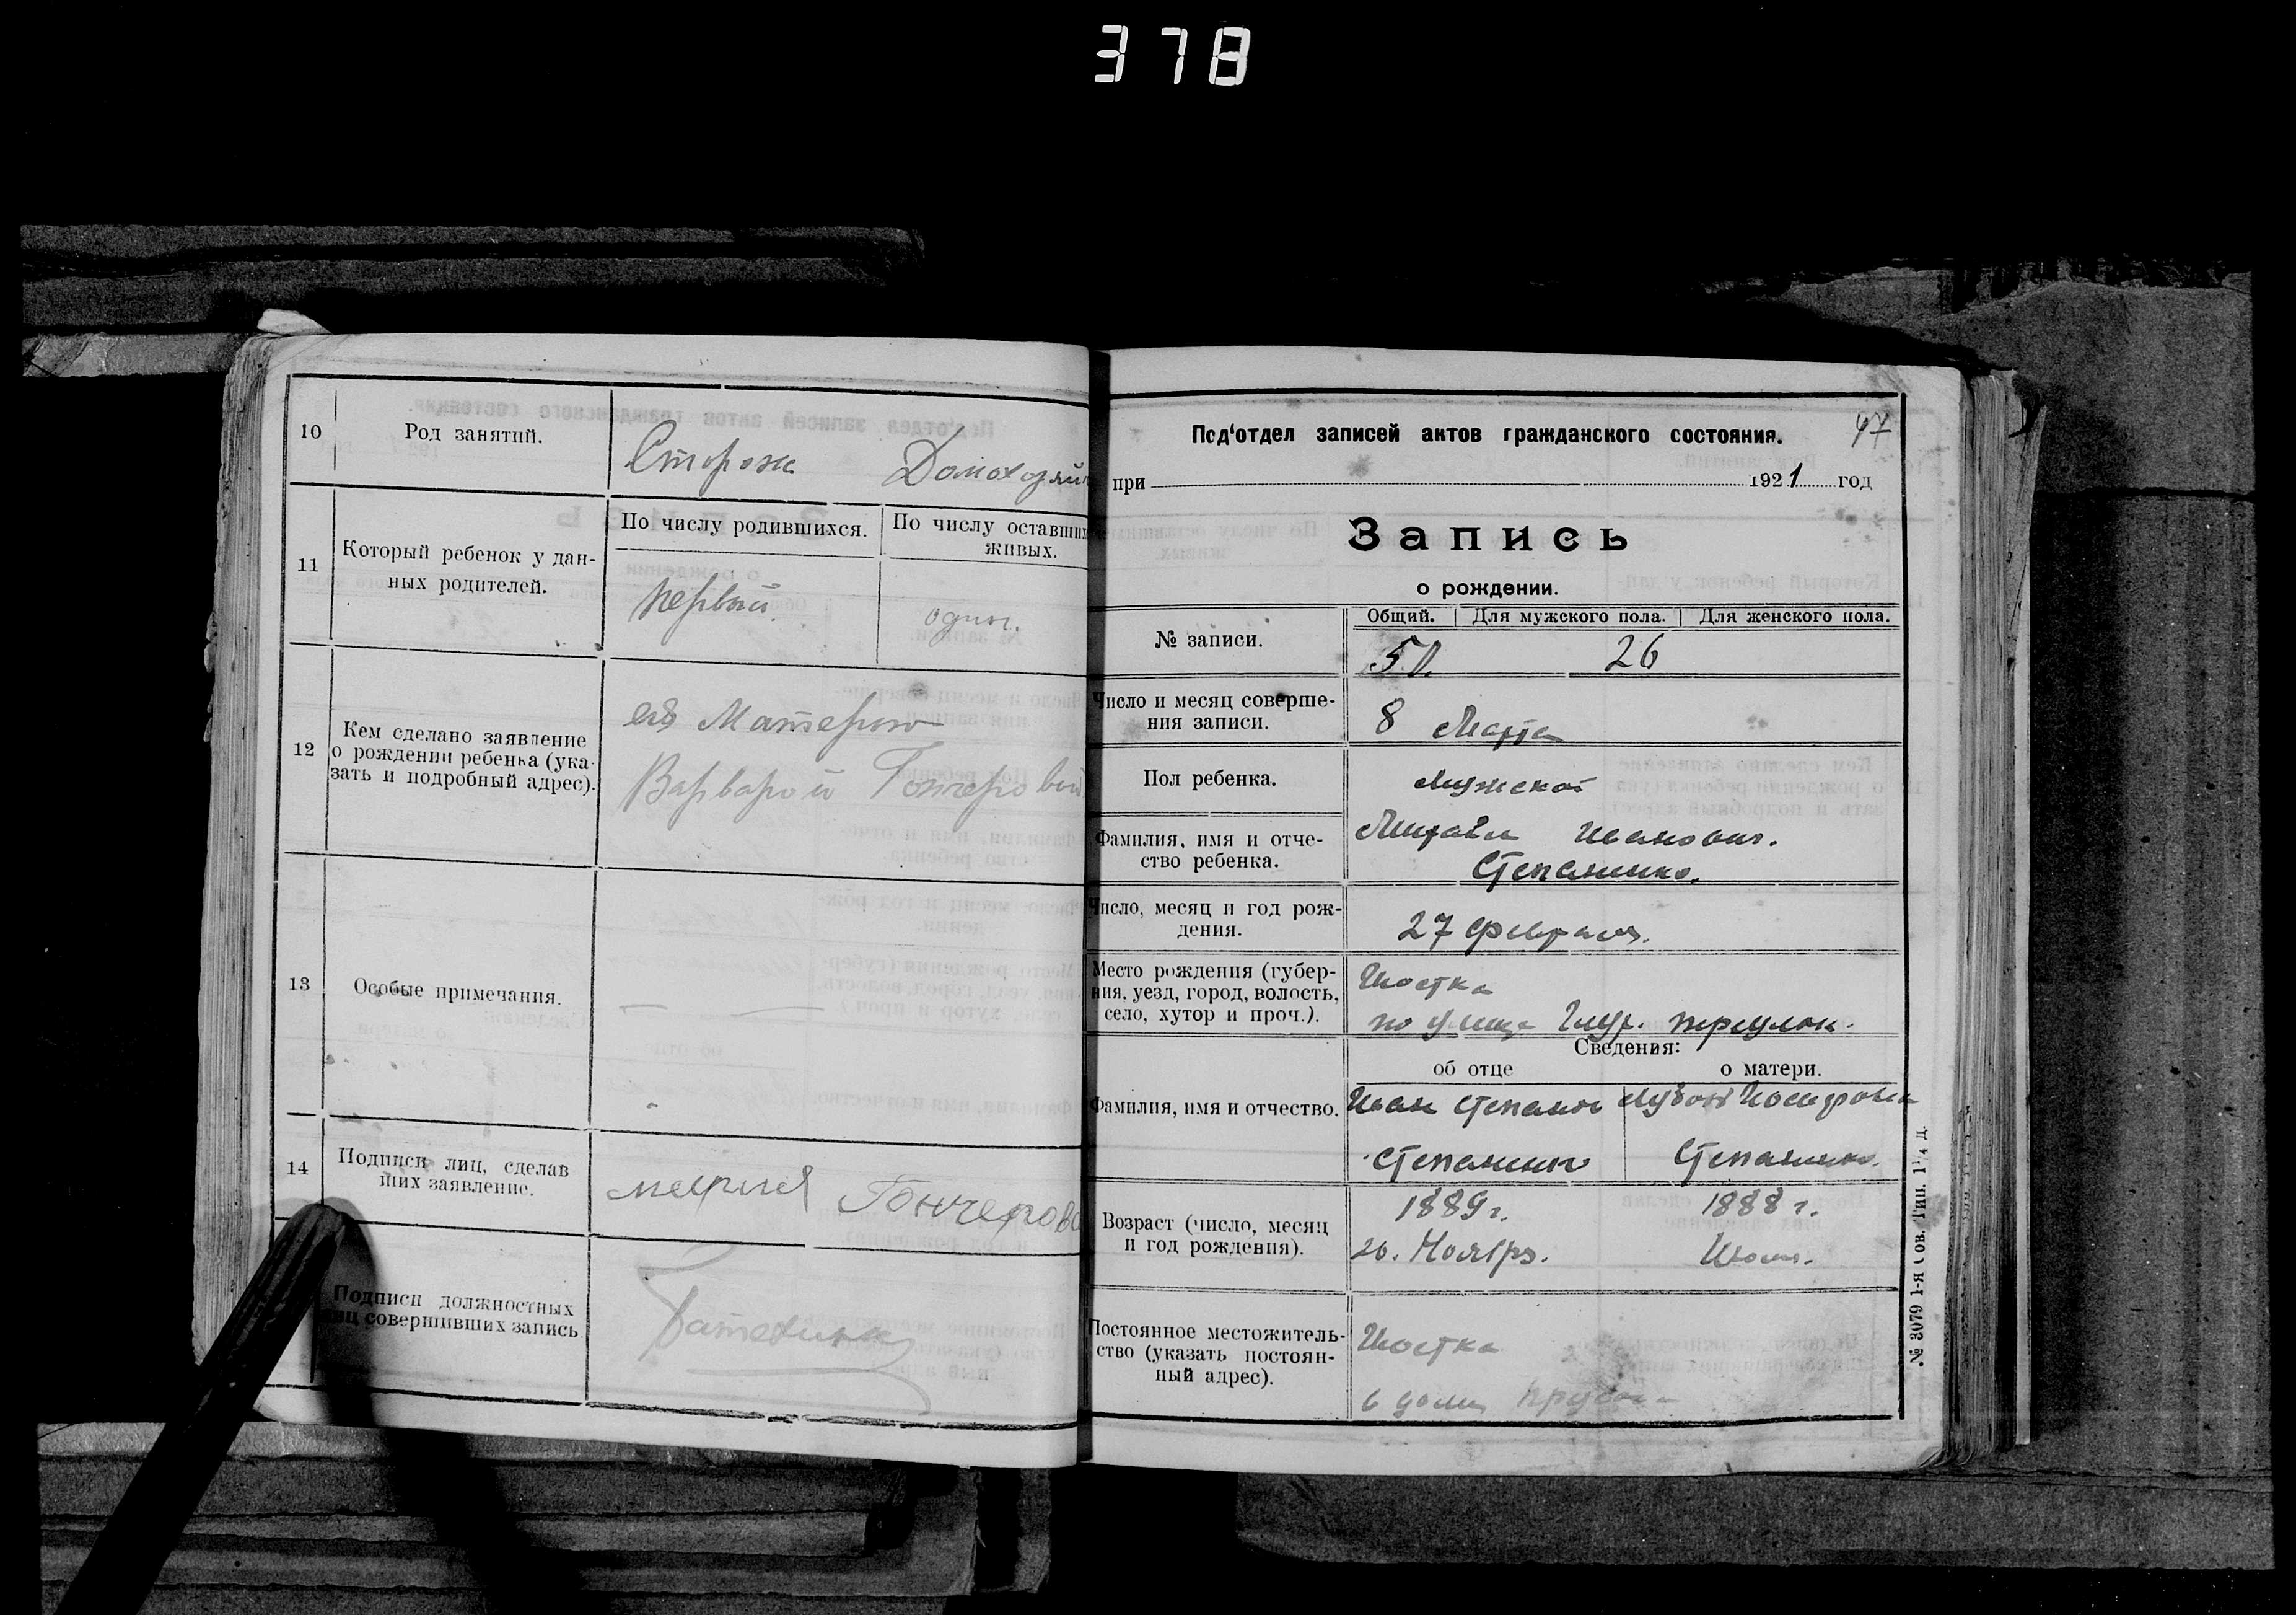 378
10
Род занятий.
Сторож
Домохозяй
11
Который ребенок у дан-
ных родителей.
По числу родившихся.
По числу оставших
живых.
первый
один.
12
Кем сделано заявление
о рождении ребенка (ука-
зать и подробный адрес).
ея Матерью
Варварой Гончеровой
13
Особые примечания.
14
Подписи лиц, сделав
ших заявление.
Гончерова
Подписи должностных
лиц совершивших запись
47
Под'отдел записей актов гражданского состояния.
при 1921 год
Запись
о рождении.
№ записи.
Общий. Для мужского пола. Для женского пола.
50. 26
Число и месяц соверше-
ния записи.
8 Марта
Пол ребенка.
Мужской
Фамилия, имя и отче-
ство ребенка.
Михаил Иванович.
Степаненко.
Число, месяц и год рож-
дения.
27 февраля.
Место рождения (губер-
ния, уезд, город, волость,
село, хутор и проч.).
Шостка
по улице переулок.
Сведения:
об отце о матери.
Фамилия, имя и отчество.
Иван Степанов
Степаненко Степаненко.
Возраст (число, месяц
и год рождения).
1889 г. 1888 г.
26. Ноябрь. Июль.
Постоянное местожитель-
ство (указать постоян-
ный адрес).
Шостка
в доме
№ 3079 1-я Сов. Тип. 1¼ д.